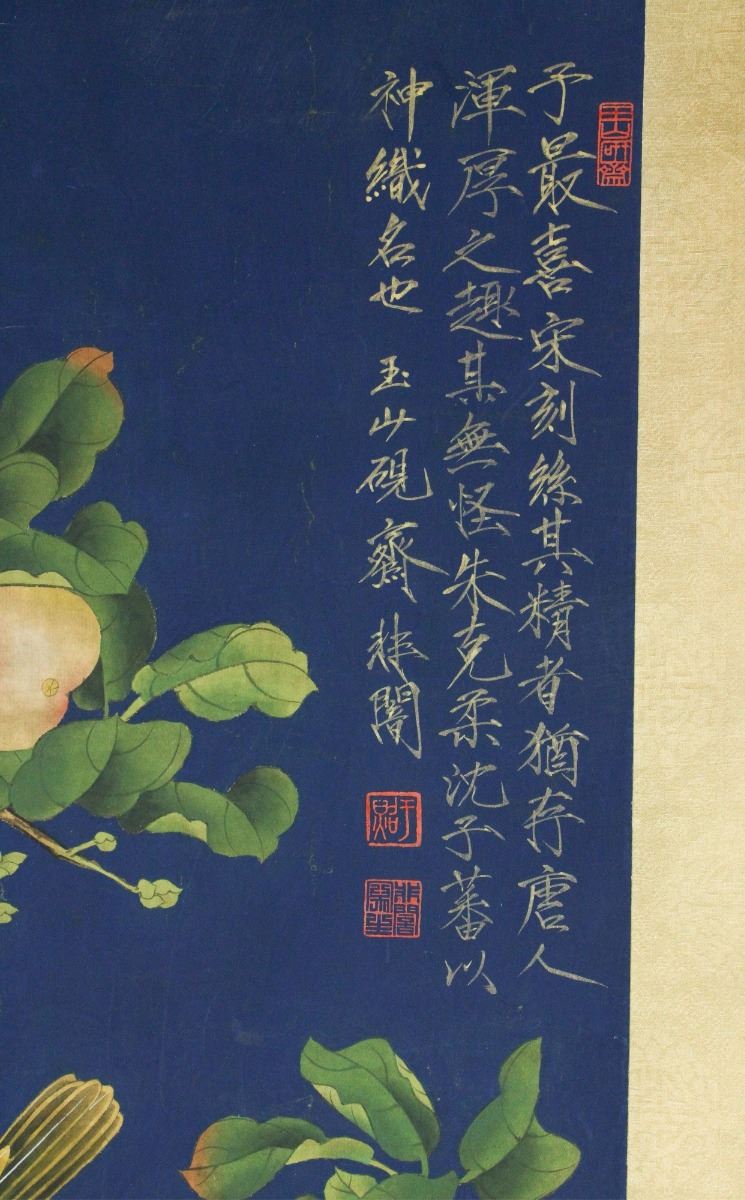 予最喜宋刻絲其精者猶存唐人
渾厚之趣其無怪朱克柔沈子蕃以
神織名也 玉山硯齋 非闇
玉山研齋
于照